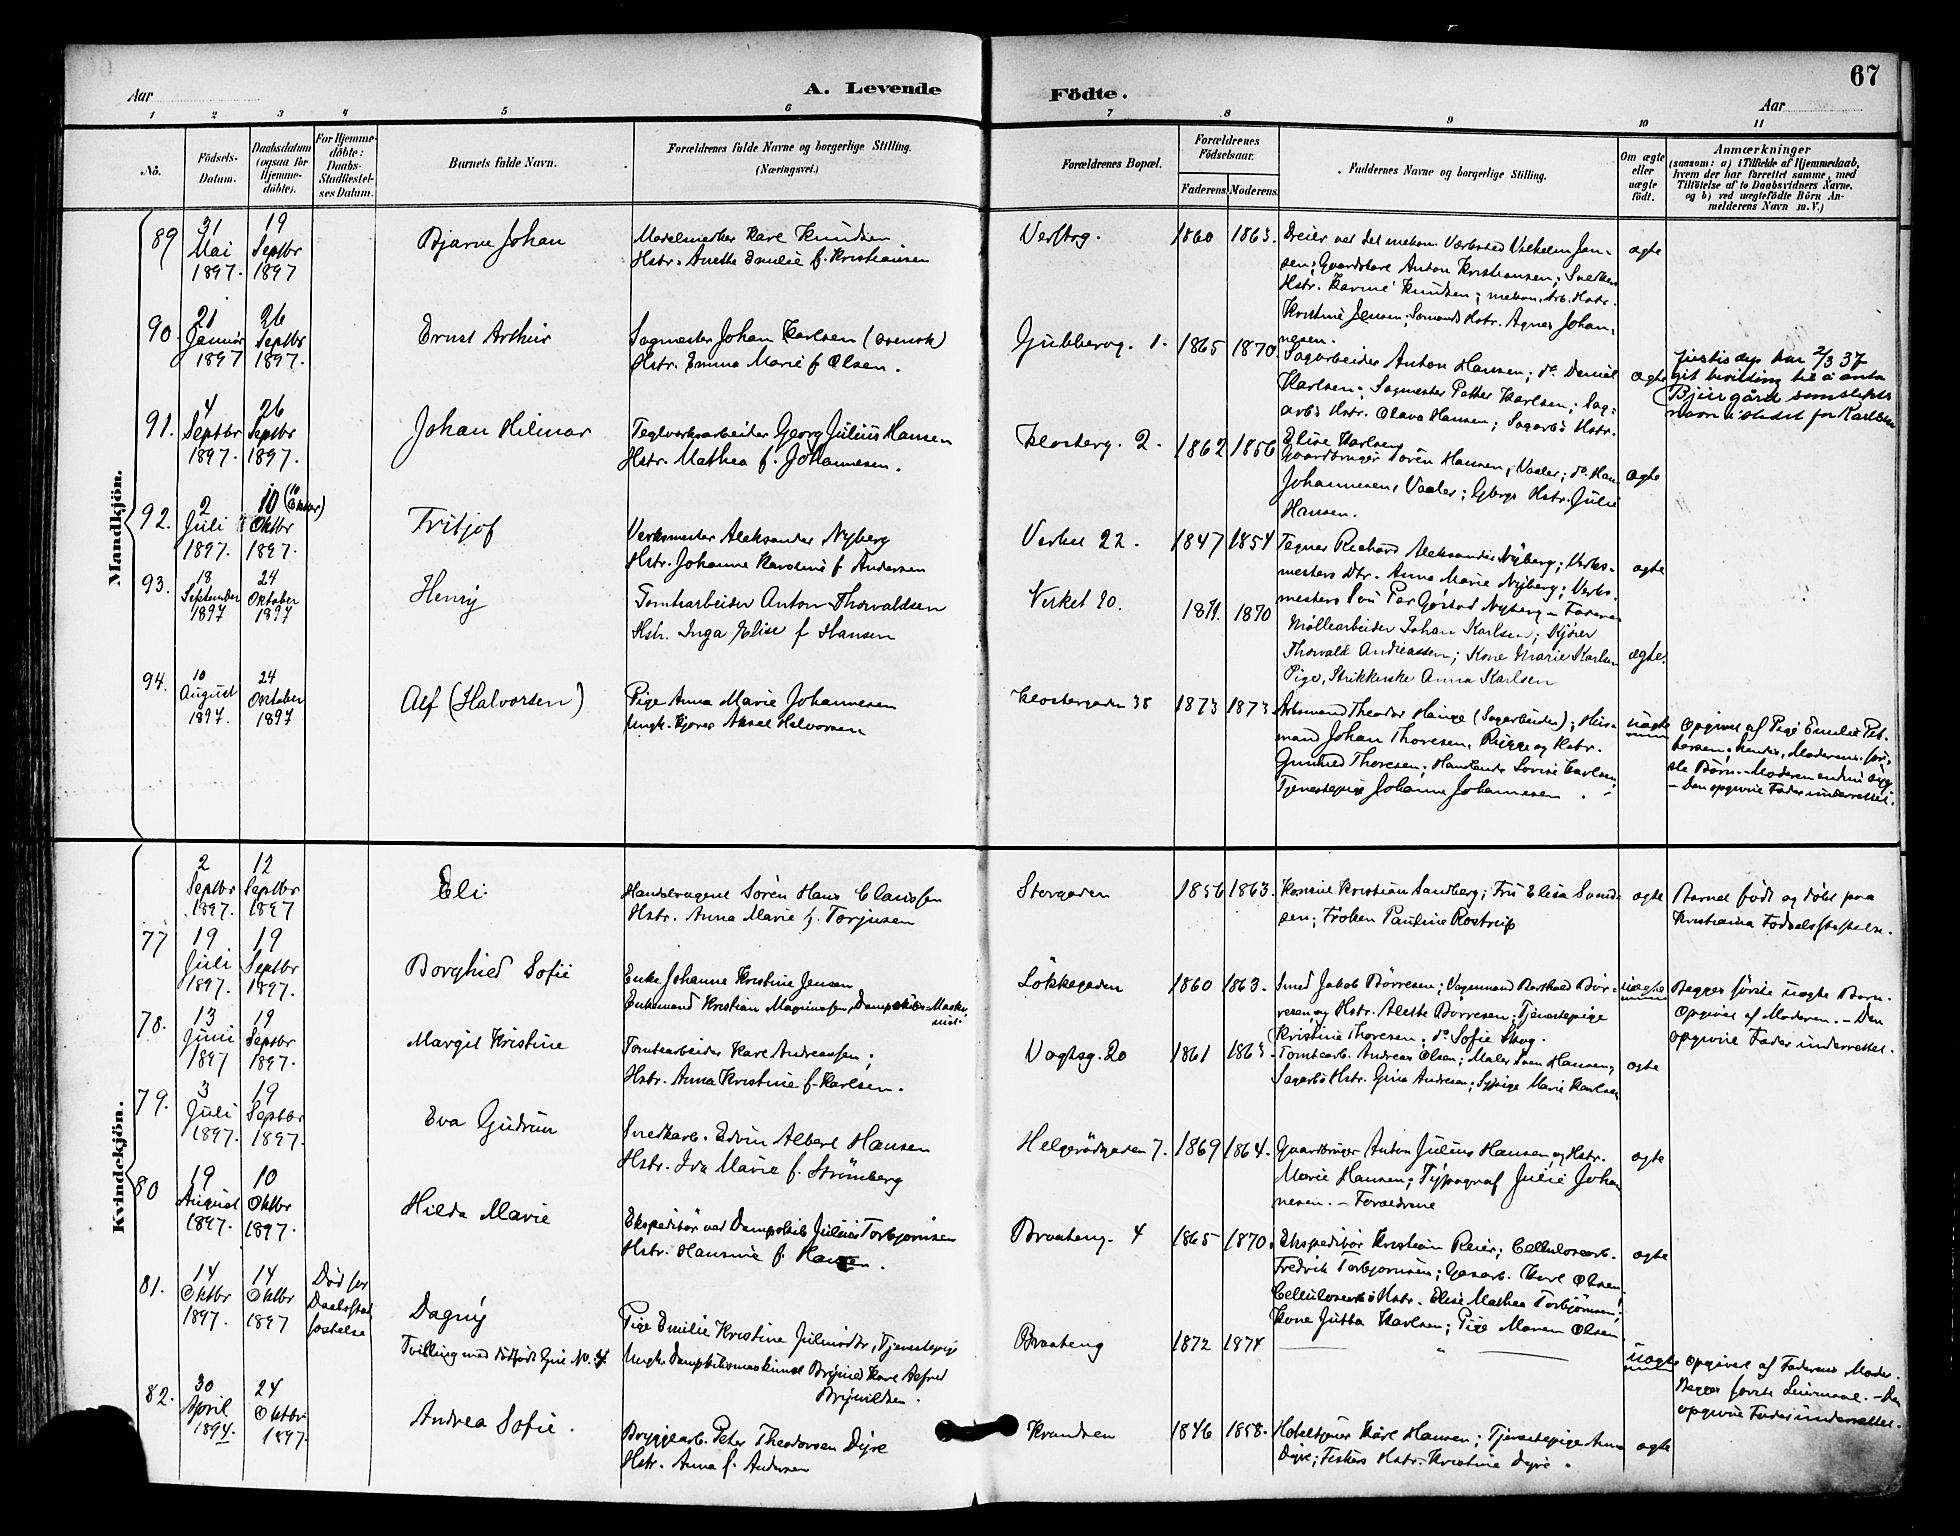 67
Aar
A. Levende
Födte.
Aar
1 2 3 4 5 6 7 8 9 10 11
No.
Födsels-
Datum.
Daabsdatum
(ogsaa för
Hjemme-
döbte).
For Hjemme-
döbte:
Daabs-
Stadfæstel-
ses Datum.
Barnets fulde Navn.
Forældrenes fulde Navne og borgerlige Stilling.
(Næringsvei.)
Forældrenes Bopæl.
Forældrenes
Födselsaar.
Faderens. Moderens.
Faddernes Navne og borgerlige Stilling.
Om ægte
eller
uægte
födt.
Anmærkninger
(saasom: a) i Tilfælde af Hjemmedaab,
hvem der har forrettet samme, med
Tilföielse af to Daabsvidners Navne,
og b) ved uægtefödte Börn An-
melderens Navn m. V.)
Mandkjön.
89
31
Mai
1897.
19
Septbr
1897
Bjarne Johan
Karl Knudsen
Hstr. Anette Emilie f. Kristiansen
1860 1863.
Dreier ved det mekan. Værksted Vilhelm Jen-
sen; Gaardskarl Anton Kristiansen; Snedker
Hstr. Karine Knudsen; mekan. Arb. Hstr.
Kristine Jensen; Sømands Hstr. Agnes Johan-
nesen.
ægte
90.
21
Januar
1897
26
Septbr
1897.
Ernst Arthur
Sagmester Johan Karlsen (svensk)
Hstr. Emma Marie f. Olsen.
Gubberog. 1.
1865 1870
Sagarbeider Anton Hansen; do Daniel
Karlsen; Sagmester Petter Karlsen; Sag-
arbs Hstr. Olava Hansen; Sagarbs Hstr.
Elise Karlsen
ægte
Justisdep. har 2/3 37
git bevilling til å anta
Bjergård som slekts
navn istedet for Karlsen
91.
4
Septbr
1897.
26
Septbr
1897.
Johan Hilmar
Teglverksarbeider Georg Julius Hansen
Hstr. Mathea f. Johannesen.
Klosterg. 2.
1862 1856
Gaardbruger Sören Hansen, Vaaler; do Han
Johannesen, Vaaler; Gbrgs Hstr. Julie
Hansen.
ægte
92.
2
Juli
1897.
10
Oktbr
1897.
Fritjof
Verksmester Aleksander Nyberg
Hstr. Johanne Karoline f. Andersen
Verket 22.
1847 1854
Tegner Richard Aleksander Nyberg; Verks-
mesters Dtr. Anna Marie Nyberg; Verks-
mesters Sön Per Göstad Nyberg – Faderen
ægte
93.
18
September
1897
24
Oktober
1897
Henry
Tomtearbeider Anton Thorvaldsen
Hstr. Inga Elise f. Hansen
Verket 20.
1871. 1870
Möllearbeider Johan Karlsen; Kjörer
Thorvald Andreassen; Kone Marie Karlsen
Pige, Strikkerske Anna Karlsen
ægte.
94.
10
August
1897.
24
Oktober
1897
Alf (Halvorsen)
Pige Anna Marie Johannesen
Ungk. Kjører Aksel Halvorsen
Klostergaden 38
1873 1873.
Arbmand Theodor Hauge (Sagarbeider); Hus-
mand Johan Thoresen, Rygge og Hstr.
Gunhild Thoresen; Handlende Lovise Karlsen,
Tjenestepige Johanne Johannesen.
uægte
Opgivet af Pige Emilie Pet-
tersen; hendes, Moderens för-
ste Börn. – Moderen endnu syg
– Den opgivne Fader underrettet.
Kvindekjön.
77
2
Septbr
1897.
12
Septbr
1897
Eli
Handelsagent Sören Hans Claussen
Hstr. Anna Marie f. Torjusen
Storgaden
1856 1863.
Konsul Kristian Sandberg; Fru Elisa Svend-
sen; Fröken Pauline Rostrup
ægte
Barnet födt og döbt paa
Kristiania Födselsstiftelse.
78.
19
Juli
1897.
19
Septbr
1897.
Borghild Sofie
Enke Johanne Kristine Jensen
Enkemand Kristian Magnussen, Dampskibs-Maski-
nist.
Lökkegaden
1860 1863.
Smed Jakob Börresen; Vognmand Barthold Bör-
resen og Hstr. Alette Börresen; Tjenestepige
Kristine Thoresen, do Sofie Skog.
uægte
Begges förste uægte Barn.
Opgivet af Moderen. – Den
opgivne Fader underrettet.
79.
13
Juni
1897
19
Septbr
1897.
Margit Kristine
Tomtearbeider Karl Andreassen;
Hstr. Anna Kristine f. Karlsen.
Vogtsg. 20
1861 1863.
Tomtearb. Andreas Olsen; Maler Sven Hansen;
Sagarbs Hstr. Gina Andresen; Sypige Marie Karlsen
ægte
80
3
Juli
1897.
19
Septbr
1897.
Eva Gudrun
Snedkarb. Edvin Albert Hansen
Hstr. Ida Marie f. Strömberg
Helgerödgaden 7.
1869 1864.
Gaardbruger Anton Julius Hansen og Hstr.
Marie Hansen; Typograf Julie Johan
nesen. – Forældrene
ægte
19
August
1897.
10
Oktbr
1897.
Hilda Marie
Ekspeditör ved Dampskib Julius Torbjörnsen
Hstr. Hansine f. Hansen.
Braateng. 4
1865 1870.
Ekspeditör Kristian Reier; Cellulosearb.
Fredrik Torbjörnsen; Gasarb. Karl Olsen
Cellulosearbs Hstr. Elise Mathea Torbjörnsen;
Kone Jutta Karlsen; Pige Maren Olsen.
ægte
81.
14
Oktbr
1897.
14
Oktbr
1897
Död för
Daabsstad
fæstelse
Dagny
Tvilling med dödfödt Gut No. 4.
Pige Emilie Kristine Julmoder, Tjenestepige
Ungk. Dampskibsmaskinist Brynild Karl Alfred
Brynildsen.
Braateng
1872 1874
— " —
uægte
opgivet af Faderens Moder.
Begges förste Leiermaal. – Den
opgivne Fader underrettet.
82.
30
April
1894.
24
Oktbr
1897.
Andrea Sofie.
Bryggearb. Peter Theodorsen Dyre
Hstr. Anna f. Andersen
Krandsen
1846 1858.
Hotelttjener Karl Hansen; Tjenestepige Anna
Dyre; Fiskers Hstr. Kristine Dyre.
ægte